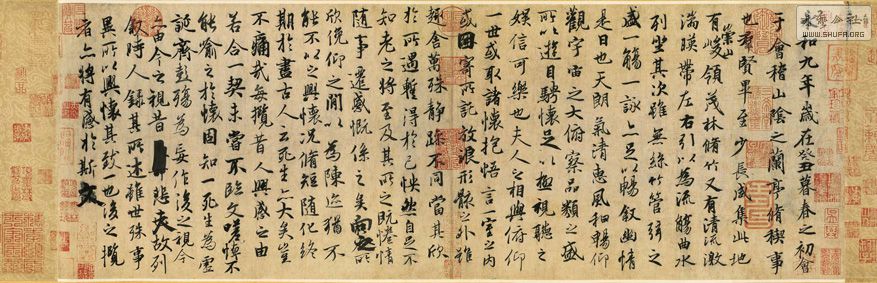 和九年歲在癸丑暮春之初會
于會稽山陰之蘭亭脩稧事
也羣賢畢至少長咸集此地
有崇山峻領茂林脩竹又有清流激
湍暎帶左右引以為流觴曲水
列坐其次雖無絲竹管弦之
盛一觴一詠亦足以暢敘幽情
是日也天朗氣清惠風和暢仰
觀宇宙之大俯察品類之盛
所以遊目騁懷足以極視聽之
娛信可樂也夫人之相與俯仰
一世或取諸懷抱悟言一室之內
或因寄所託放浪形骸之外雖
趣舍萬殊靜躁不同當其欣
於所遇蹔得於己怏然自足不
知老之將至及其所之既惓情
隨事遷感慨係之矣向之所
欣俛仰之閒以為陳迹猶不
能不以之興懷況脩短隨化終
期於盡古人云死生亦大矣豈
不痛哉每攬昔人興感之由
若合一契未嘗不臨文嗟悼不
能喻之於懷固知一死生為虛
誕齊彭殤為妄作後之視今
亦由今之視昔悲夫故列
敘時人錄其所述雖世殊事
異所以興懷其致一也後之攬
者亦將有感於斯文
WWW.SHUFA.ORG